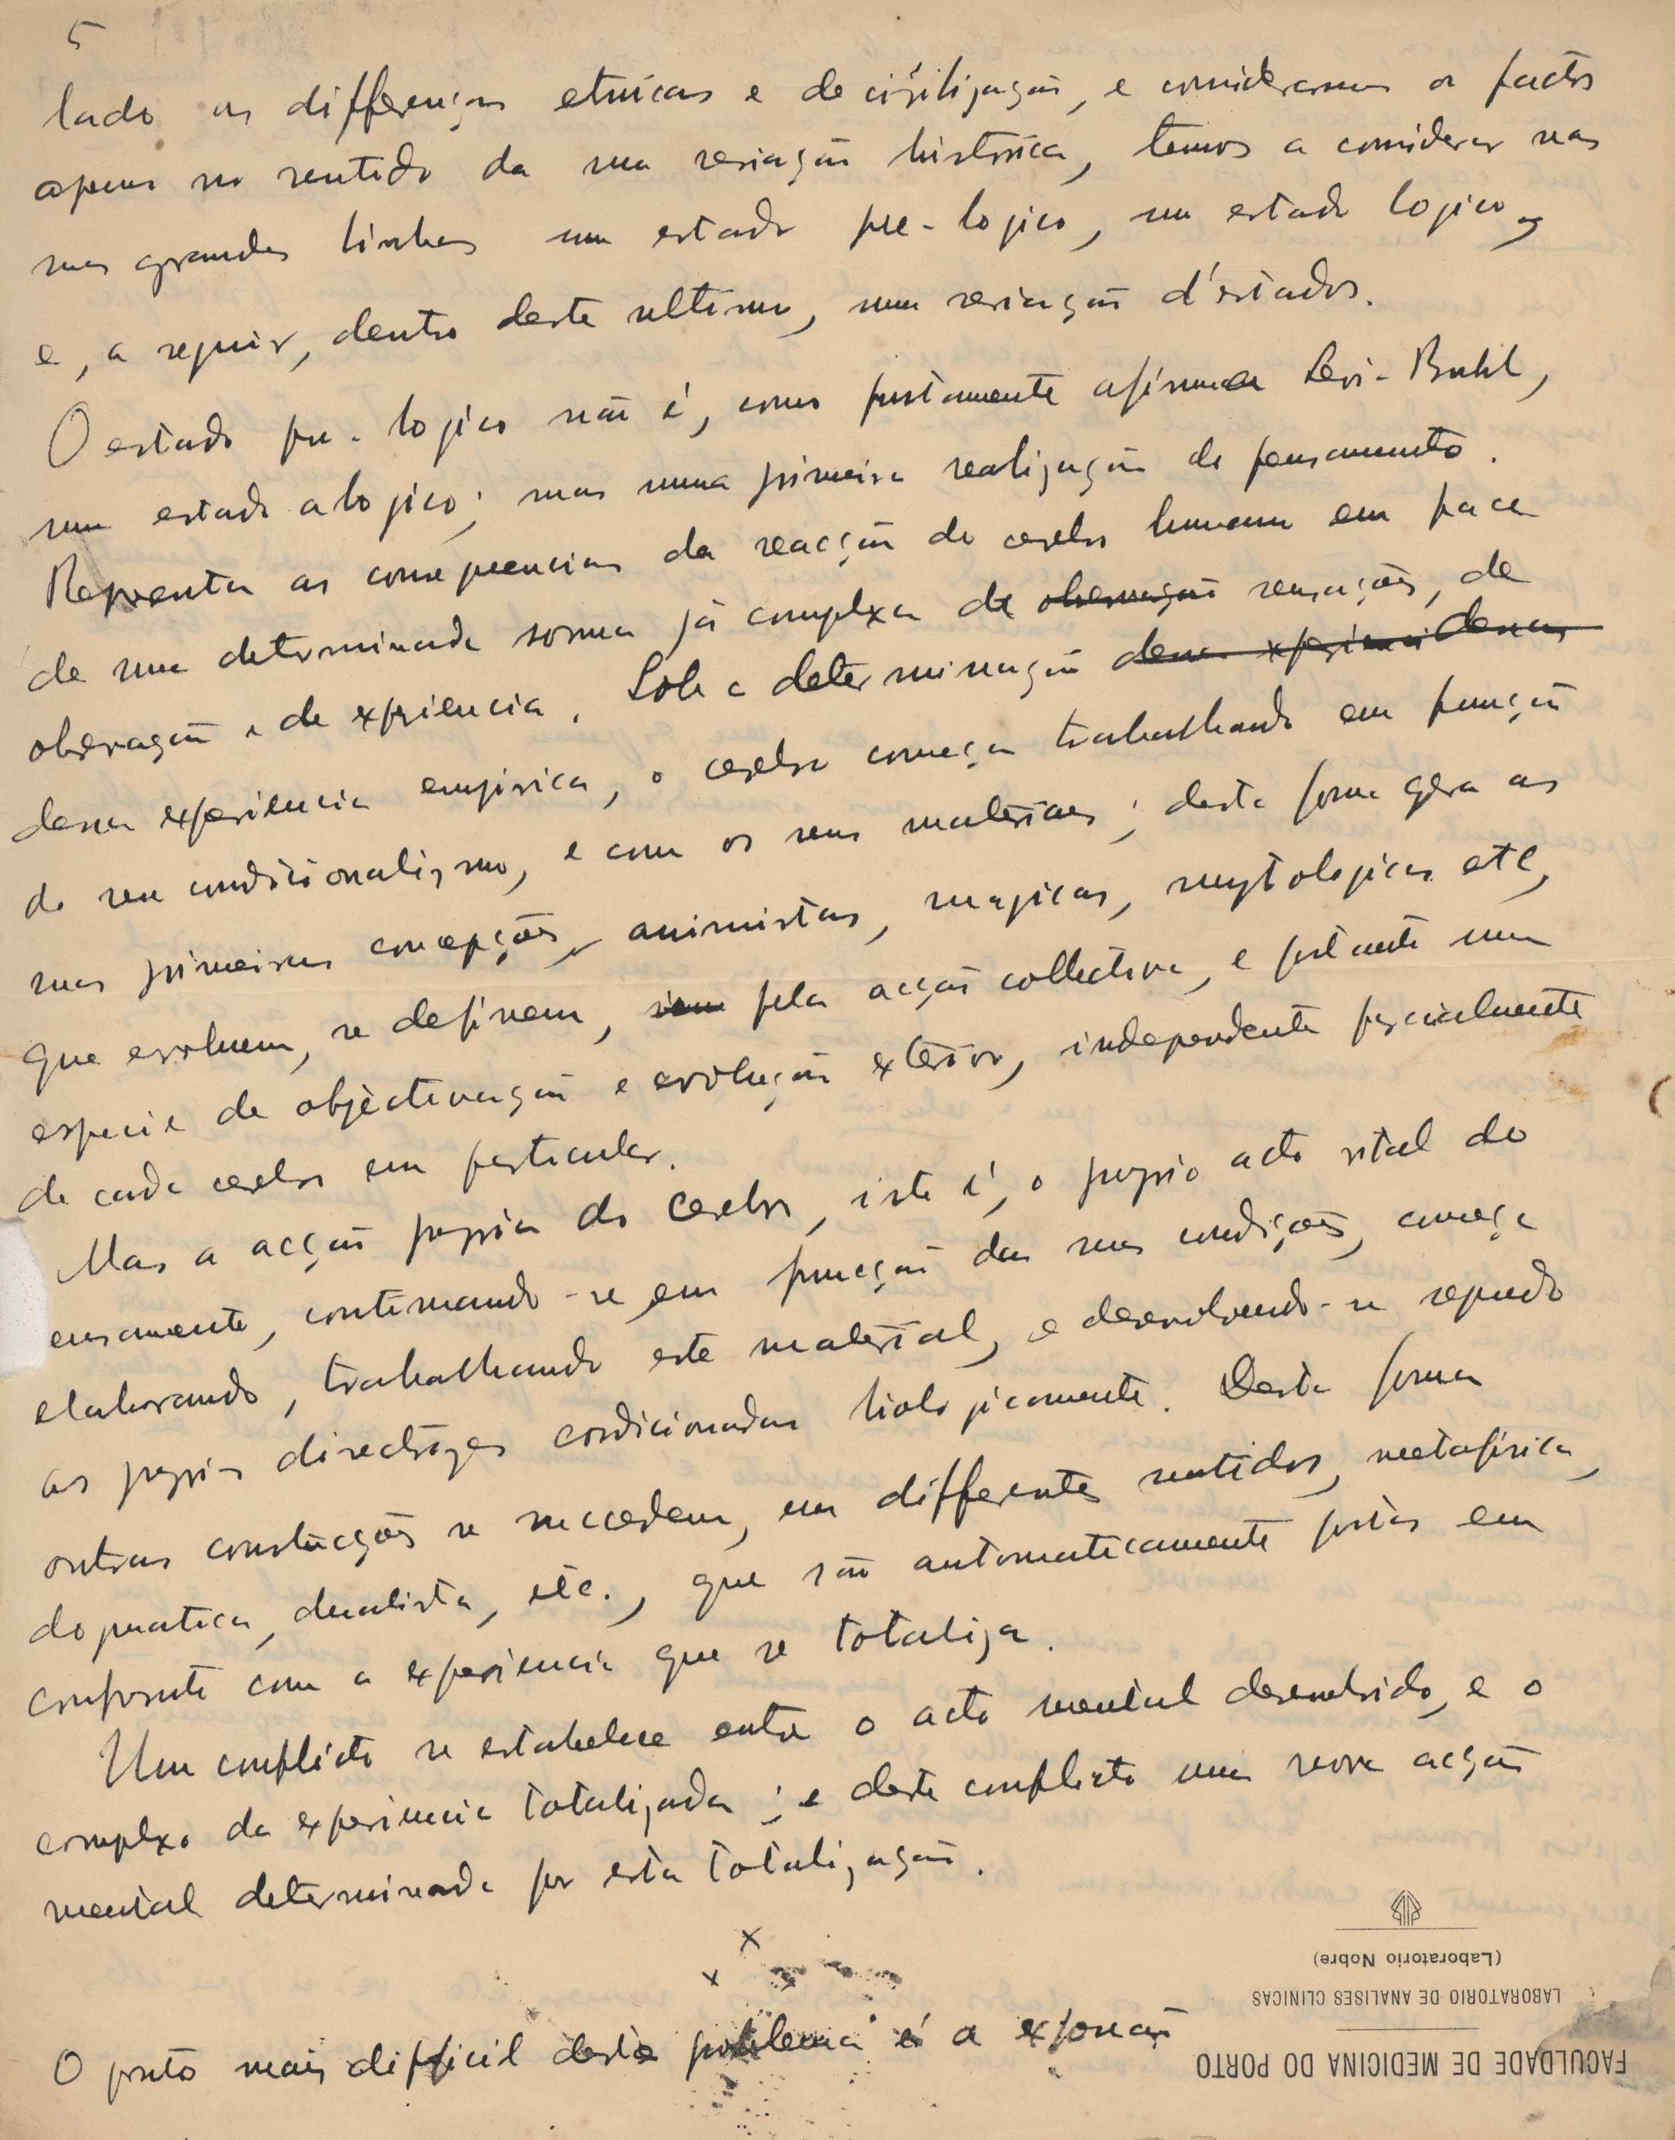 5
lado as differenças etnicas e de civilização, e considerarmos os factos
apenas no sentido da sua seriação historica, temos a considerar nas
suas grandes linhas um estado pre-logico, um estado logico,
e, a seguir, dentro deste ultimo, uma seriação d'estados.
O estado pre-logico não é, como justamente afirma Levi-Bruhl,
um estado alogico; mas numa primeira realização do pensamento.
Representa as consequencias da reacção do cerebro humano em face
de uma determinada somma já complexa de observação sensações, de
observação e de experiencia. Sob a determinação dessa experiencia dessas
dessa experiencia empirica, o cerebro começa trabalhando em função
do seu condicionalismo, e com os seus materiaes; desta forma gera as
suas primeiras concepções, animistas, magicas, mytologicas etc,
que evoluem, se definem, pela acção collectiva, e portanto uma
especie de objectivação e evolução exterior, independente parcialmente
de cada cerebro em particular.
Mas a acção propria do cerebro, isto é, o proprio acto vital do
ensamento, continuando-se em funcção das suas condições, começa
elaborando, trabalhando este material, e desenvolvendo-se segundo
as proprias directrizes condicionadas biologicamente. Desta forma
outras construcções se succedem, em differentes sentidos, metafisica,
dogmatica, dualista, etc., que são automaticamente postas em
confronto com a experiencia que se totaliza.
Um conflicto se estabelece entre o acto mental desenvolvido, e o
complexo da experiencia totalizada; e deste conflicto uma nova acção
mental determinada por esta totalização.
x
x x
O ponto mais difficil deste problema é a expressão
FACULDADE DE MEDICINA DO PORTO
LABORATORIO DE ANALISES CLINICAS
(Laboratorio Nobre)